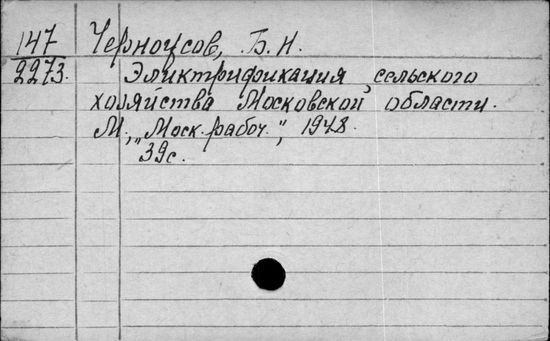 147 Черноусов, Б. Н.
2273. Электрификация сельского
хозяйства Московской области.
М., „Моск. рабоч.", 1948.
39с.